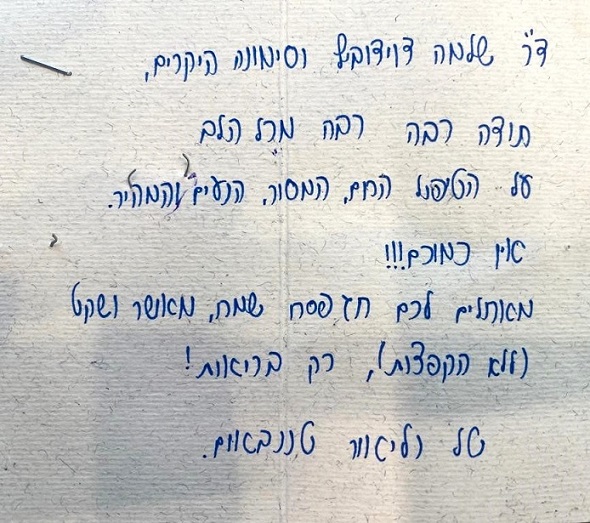 ד"ר שלמה דוידוביץ וסימונה היקרים,
תודה רבה רבה מכל הלב
על הטיפול החם, המסור, הנעים והמהיר.
אין כמוכם!!!
מאחלים לכם חג פסח שמח, מאושר ושקט
(ללא הקפצות), רק בריאות!
טל וליאור טננבאום.